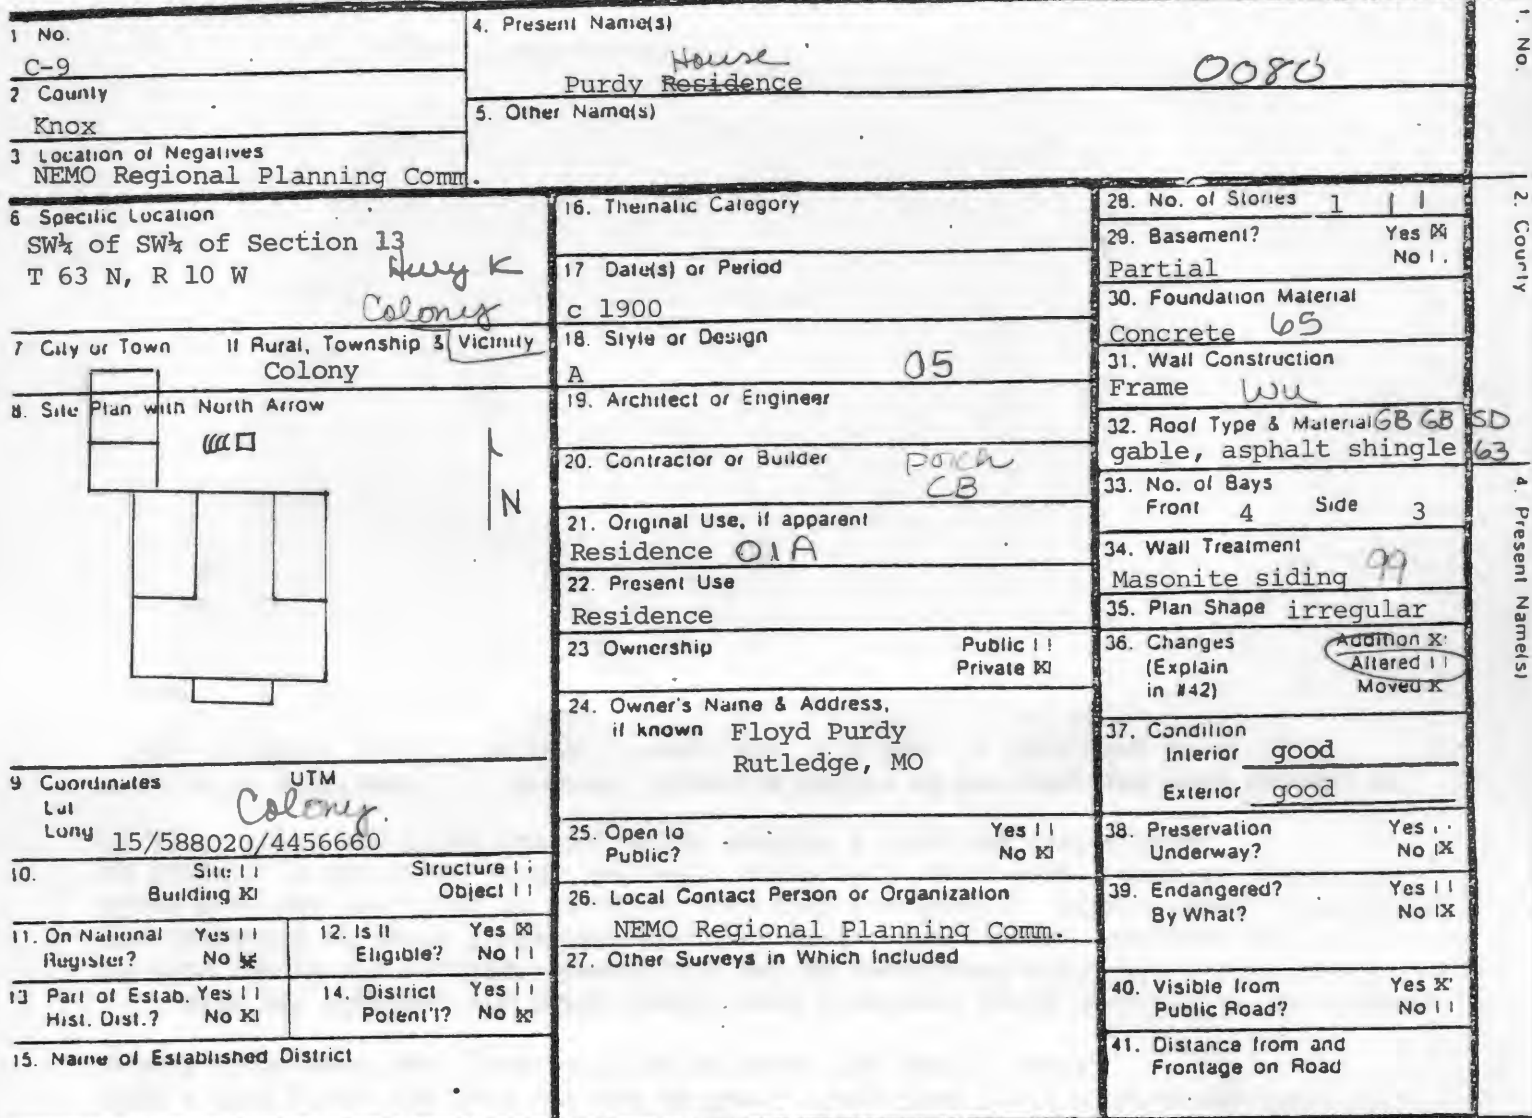 1 No.
C-9
2 County
Knox
3 Location of Negatives
NEMO Regional Planning Comm.
4. Present Name(s)
House
Purdy Residence
0080
5. Other Name(s)
6 Specific Location
SW¼ of SW¼ of Section 13
T 63 N, R 10 W
Hwy K
Colony
7 City or Town If Rural, Township & Vicinity
Colony
8. Site Plan with North Arrow
N
9 Coordinates UTM
Lat
Long
Colony.
15/588020/4456660
10. Site Structure
Building X Object
11. On National Yes
Register? No X
12. Is It Yes X
Eligible? No
13 Part of Estab. Yes
Hist. Dist.? No X
14. District Yes
Potent'l? No X
15. Name of Established District
16. Thematic Category
17 Date(s) or Period
c 1900
18. Style or Design
A 05
19. Architect or Engineer
20. Contractor or Builder
porch
CB
21. Original Use, if apparent
Residence 01A
22. Present Use
Residence
23 Ownership Public
Private X
24. Owner's Name & Address,
if known Floyd Purdy
Rutledge, MO
25. Open to Yes
Public? No X
26. Local Contact Person or Organization
NEMO Regional Planning Comm.
27. Other Surveys in Which Included
28. No. of Stories 1
29. Basement? Yes X
Partial No
30. Foundation Material
Concrete 65
31. Wall Construction
Frame WU
32. Roof Type & Material GB GB SD
gable, asphalt shingle 63
33. No. of Bays
Front 4 Side 3
34. Wall Treatment
Masonite siding 99
35. Plan Shape irregular
36. Changes Addition X
(Explain Altered
in #42) Moved X
37. Condition
Interior good
Exterior good
38. Preservation Yes
Underway? No X
39. Endangered? Yes
By What? No X
40. Visible from Yes X
Public Road? No
41. Distance from and
Frontage on Road
1. No.
2. County
4. Present Name(s)